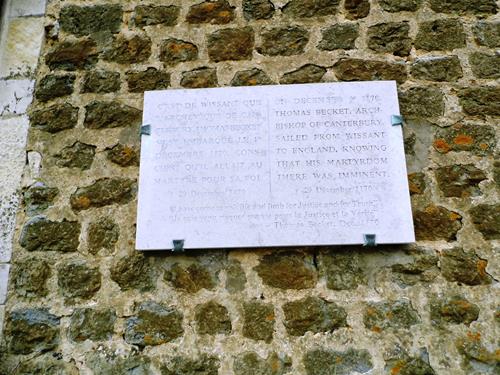 C'EST DE WISSANT QUE
L'ARCHEVEQUE DE CAN
TERBURY, THOMAS BECKET
EMBARQUE LE 1er
DECEMBRE 1170, CONS
CIENT QU'IL ALLAIT AU
MARTYRE POUR SA FOI.
29 Décembre 1170
1st DECEMBER 1170,
THOMAS BECKET, ARCH
BISHOP OF CANTERBURY,
SAILED FROM WISSANT
TO ENGLAND, KNOWING
THAT HIS MARTYRDOM
THERE WAS IMMINENT.
29 December 1170
life and limb for Justice and for Truth
pour la Justice et la Vérité
Thomas Becket, Dec.